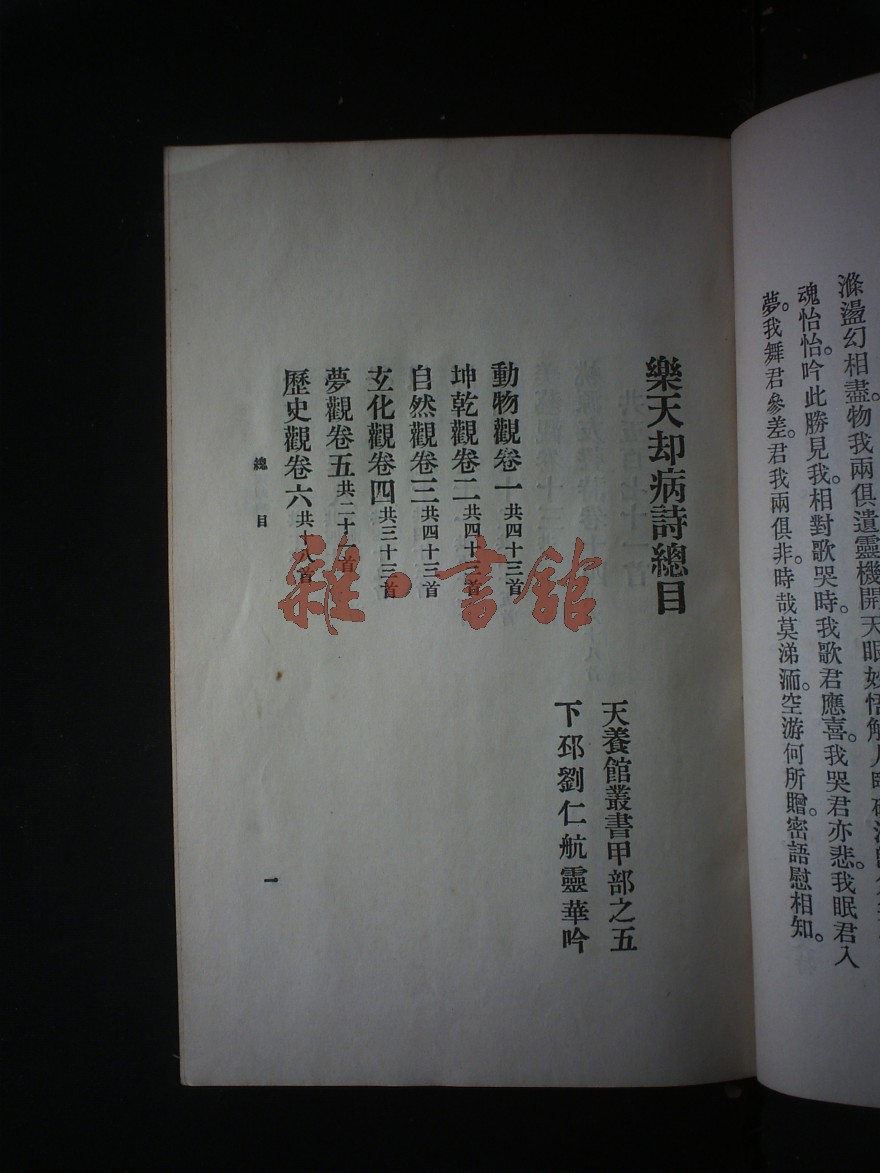 滌盪幻相盡物我兩俱遺靈機開天眼妙悟解人
魂怡怡。吟此勝見我。相對歌哭時。我歌君應喜。我哭君亦悲。我眠君入
夢。我舞君參差。君我兩俱非。時哉莫涕洏。空游何所贈。密語慰相知。
樂天却病詩總目
天養館叢書甲部之五
下邳劉仁航靈華吟
動物觀卷一共四十三首
坤乾觀卷二共四十三首
自然觀卷三共四十三首
玄化觀卷四共三十三首
夢觀卷五共二十一首
歷史觀卷六共十八首
總目
一
雜·書館